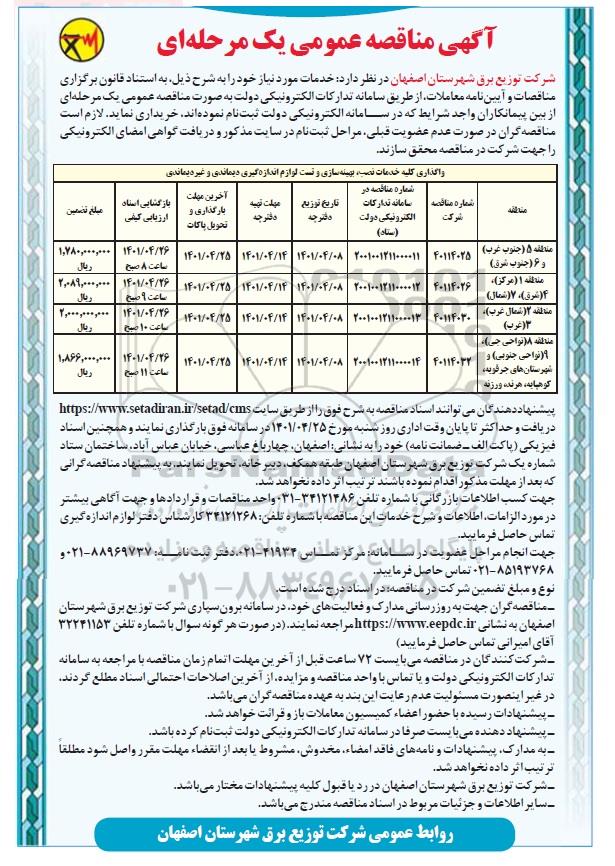 آگهی مناقصه عمومی یک مرحله‌ای
شرکت توزیع برق شهرستان اصفهان در نظر دارد: خدمات مورد نیاز خود را به شرح ذیل، به استناد قانون برگزاری
مناقصات و آیین‌نامه معاملات، از طریق سامانه تدارکات الکترونیکی دولت به صورت مناقصه عمومی یک مرحله‌ای
از بین پیمانکاران واجد شرایط که در سامانه الکترونیکی دولت ثبت‌نام نموده‌اند، خریداری نماید. لازم است
مناقصه‌گران در صورت عدم عضویت قبلی، مراحل ثبت‌نام در سایت مذکور و دریافت گواهی امضای الکترونیکی
را جهت شرکت در مناقصه محقق سازند.
واگذاری کلیه خدمات نصب، بهینه‌سازی و تست لوازم اندازه‌گیری دیماندی و غیردیماندی
منطقه | شماره مناقصه شرکت | شماره مناقصه در سامانه تدارکات الکترونیکی دولت (ستاد) | تاریخ توزیع دفترچه | مهلت تهیه دفترچه | آخرین مهلت بارگذاری و تحویل پاکات | بازگشایی اسناد ارزیابی کیفی | مبلغ تضمین
منطقه ۵ (جنوب غرب) و ۶ (جنوب شرق) | ۴۰۱۱۴۰۲۵ | ۲۰۰۱۰۰۱۲۱۱۰۰۰۰۱۱ | ۱۴۰۱/۰۴/۰۸ | ۱۴۰۱/۰۴/۱۴ | ۱۴۰۱/۰۴/۲۵ | ۱۴۰۱/۰۴/۲۶ ساعت ۸ صبح | ۱,۷۸۰,۰۰۰,۰۰۰ ریال
منطقه ۱ (مرکز)، ۴ (شرق)، ۷ (شمال) | ۴۰۱۱۴۰۲۶ | ۲۰۰۱۰۰۱۲۱۱۰۰۰۰۱۲ | ۱۴۰۱/۰۴/۰۸ | ۱۴۰۱/۰۴/۱۴ | ۱۴۰۱/۰۴/۲۵ | ۱۴۰۱/۰۴/۲۶ ساعت ۹ صبح | ۲,۰۸۹,۰۰۰,۰۰۰ ریال
منطقه ۲ (شمال غرب)، ۳ (غرب) | ۴۰۱۱۴۰۳۰ | ۲۰۰۱۰۰۱۲۱۱۰۰۰۰۱۳ | ۱۴۰۱/۰۴/۰۸ | ۱۴۰۱/۰۴/۱۴ | ۱۴۰۱/۰۴/۲۵ | ۱۴۰۱/۰۴/۲۶ ساعت ۱۰ صبح | ۲,۰۰۰,۰۰۰,۰۰۰ ریال
منطقه ۸ (نواحی جی)، ۹ (نواحی جنوبی) و شهرستان‌های جرقویه، کوهپایه، هرند، ورزنه | ۴۰۱۱۴۰۳۲ | ۲۰۰۱۰۰۱۲۱۱۰۰۰۰۱۴ | ۱۴۰۱/۰۴/۰۸ | ۱۴۰۱/۰۴/۱۴ | ۱۴۰۱/۰۴/۲۵ | ۱۴۰۱/۰۴/۲۶ ساعت ۱۱ صبح | ۱,۸۶۶,۰۰۰,۰۰۰ ریال
پیشنهاددهندگان می‌توانند اسناد مناقصه به شرح فوق را از طریق سایت https://www.setadiran.ir/setad/cms
دریافت و حداکثر تا پایان وقت اداری روز شنبه مورخ ۱۴۰۱/۰۴/۲۵ در سامانه فوق بارگذاری نمایند و همچنین اسناد
فیزیکی (پاکت الف ـ ضمانت نامه) خود را به نشانی: اصفهان، چهارباغ عباسی، خیابان عباس آباد، ساختمان ستاد
شماره یک شرکت توزیع برق شهرستان اصفهان طبقه همکف، دبیرخانه، تحویل نمایند. به پیشنهاد مناقصه گرانی
که بعد از مهلت مذکور اقدام نموده باشند ترتیب اثر داده نخواهد شد.
جهت کسب اطلاعات بازرگانی با شماره تلفن ۳۴۱۲۱۴۸۶-۰۳۱ واحد مناقصات و قراردادها و جهت آگاهی بیشتر
در مورد الزامات، اطلاعات و شرح خدمات این مناقصه با شماره تلفن: ۳۴۱۲۱۲۶۸ کارشناس دفتر لوازم اندازه گیری
تماس حاصل فرمایید.
جهت انجام مراحل عضویت در سامانه: مرکز تماس ۴۱۹۳۴-۰۲۱، دفتر ثبت نامه: ۸۸۹۶۹۷۳۷-۰۲۱ و
۸۵۱۹۳۷۶۸-۰۲۱ تماس حاصل فرمایید.
نوع و مبلغ تضمین شرکت در مناقصه: در اسناد درج شده است.
ـ مناقصه‌گران جهت به روزرسانی مدارک و فعالیت‌های خود، در سامانه برون‌سپاری شرکت توزیع برق شهرستان
اصفهان به نشانی https://www.eepdc.ir مراجعه نمایند. (در صورت هر گونه سوال با شماره تلفن ۳۲۲۴۱۱۵۳
آقای امیرانی تماس حاصل فرمایید)
ـ شرکت‌کنندگان در مناقصه می‌بایست ۷۲ ساعت قبل از آخرین مهلت اتمام زمان مناقصه با مراجعه به سامانه
تدارکات الکترونیکی دولت و یا تماس با واحد مناقصه و مزایده، از آخرین اصلاحات احتمالی اسناد مطلع گردند،
در غیر اینصورت مسئولیت عدم رعایت این بند به عهده مناقصه‌گران می‌باشد.
ـ پیشنهادات رسیده با حضور اعضاء کمیسیون معاملات باز و قرائت خواهد شد.
ـ پیشنهاد دهنده می‌بایست صرفا در سامانه تدارکات الکترونیکی دولت ثبت‌نام کرده باشد.
ـ به مدارک، پیشنهادات و نامه‌های فاقد امضاء، مخدوش، مشروط یا بعد از انقضاء مهلت مقرر واصل شود مطلقاً
ترتیب اثر داده نخواهد شد.
ـ شرکت توزیع برق شهرستان اصفهان در رد یا قبول کلیه پیشنهادات مختار می‌باشد.
ـ سایر اطلاعات و جزئیات مربوط در اسناد مناقصه مندرج می‌باشد.
روابط عمومی شرکت توزیع برق شهرستان اصفهان
ParsNamadData
۰۲۱-۸۸۳۴۹۶۷۰-۵